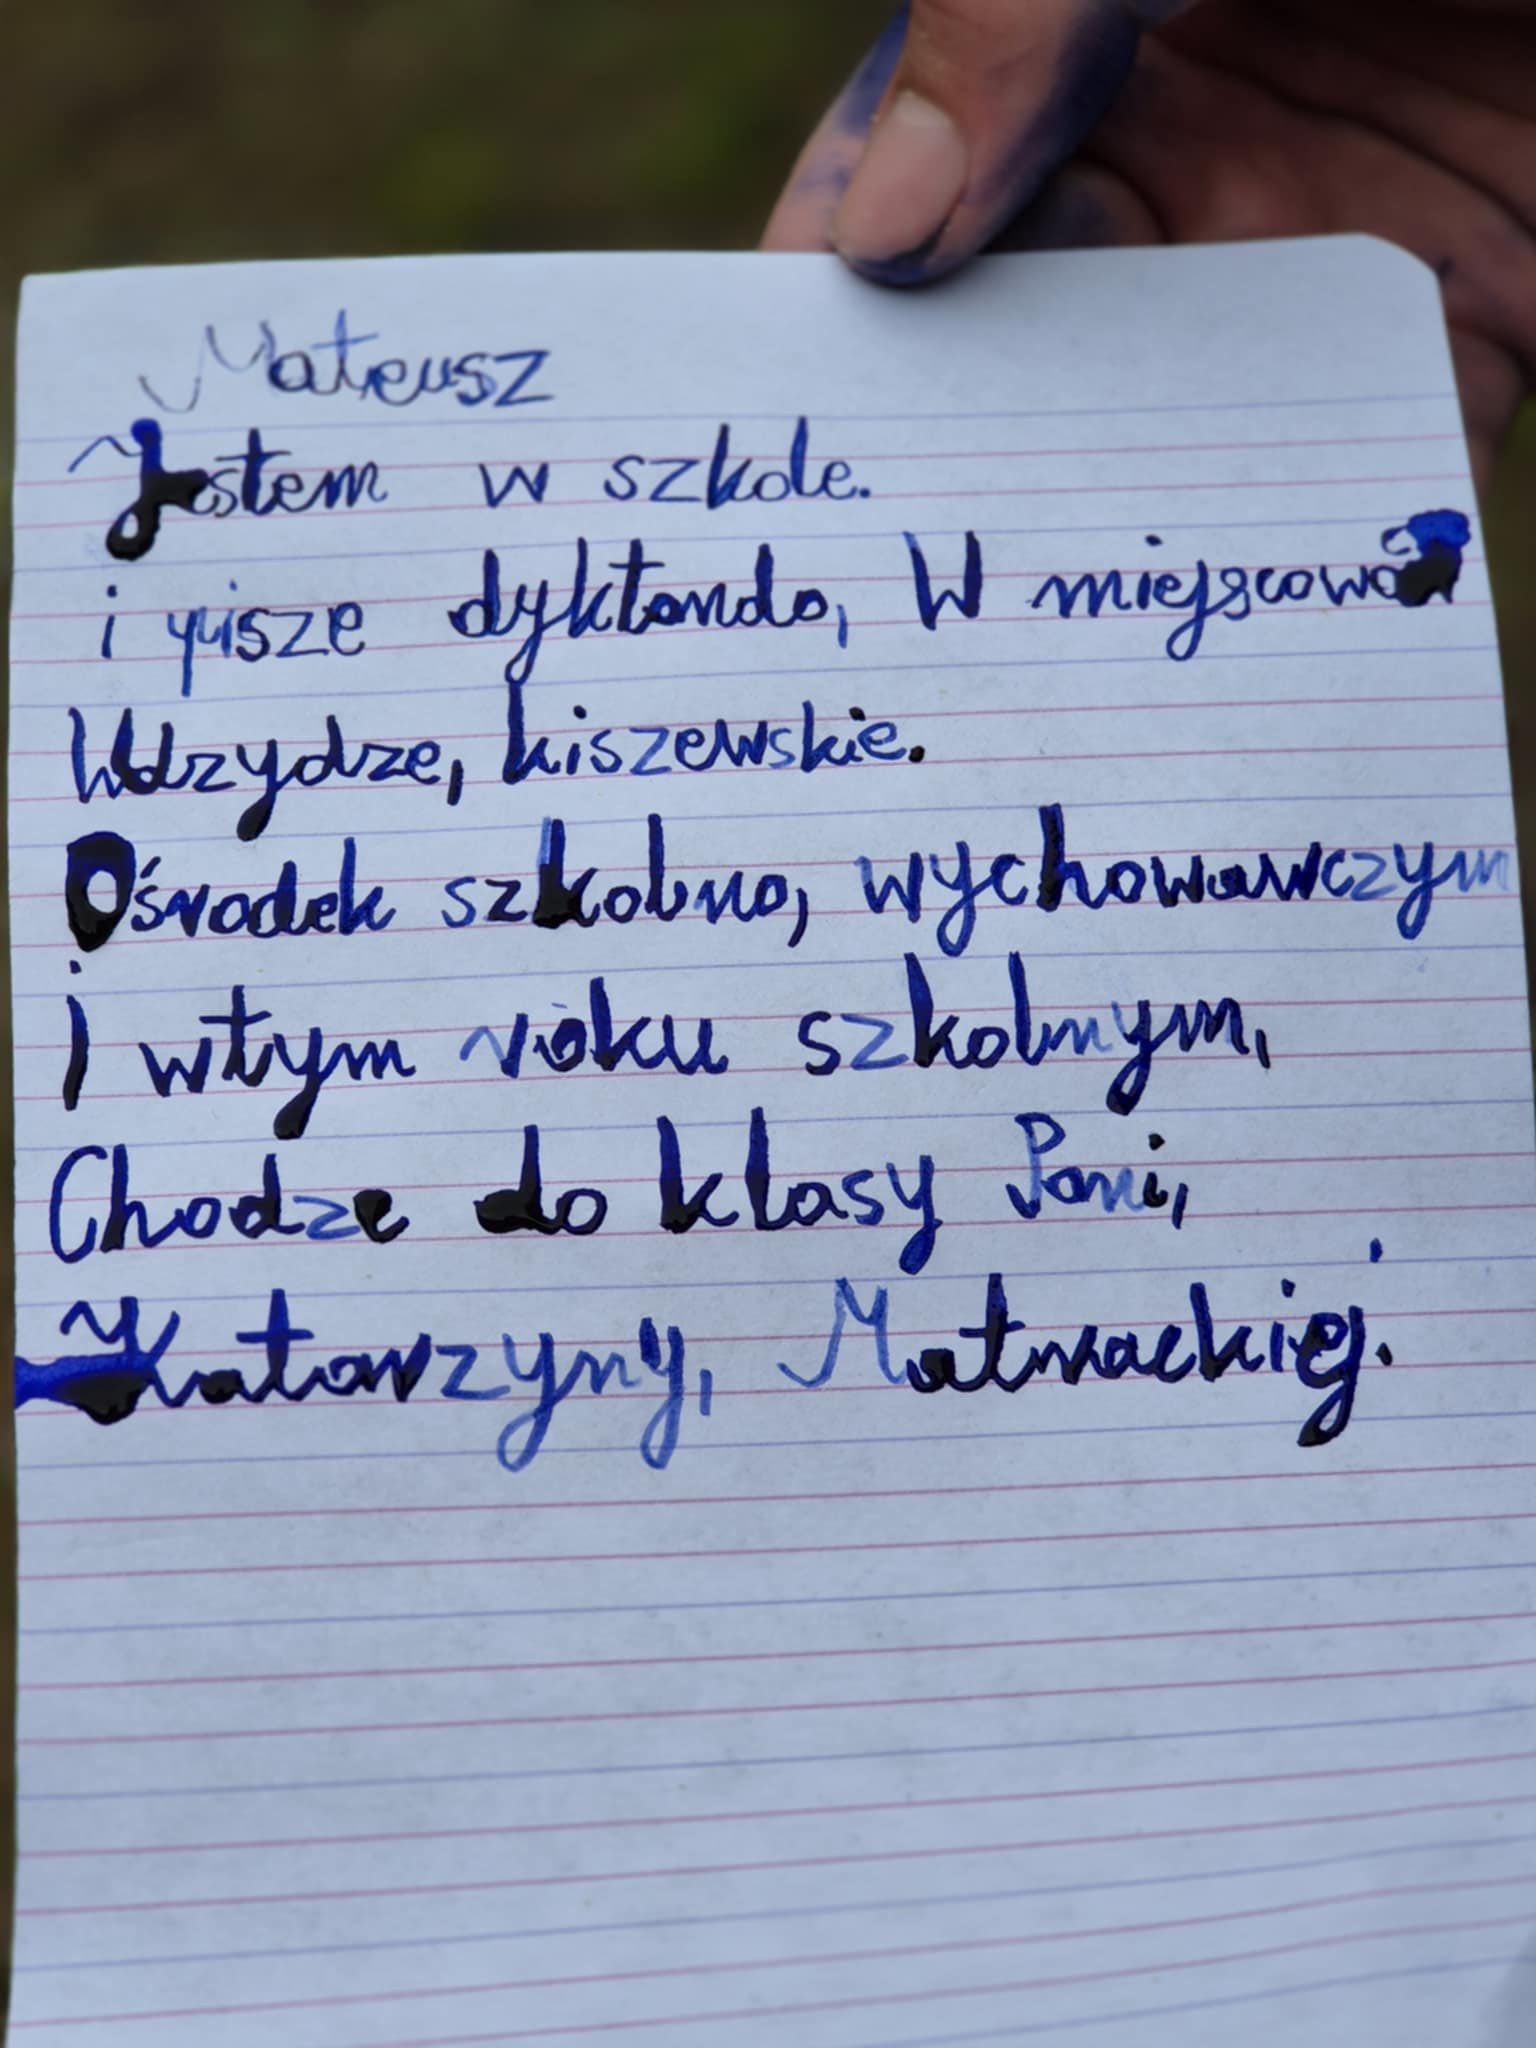 Mateusz
Jestem w szkole.
i pisze dyktando, W
Wdzydze, kiszewskie.
Ośrodek szkolno, wychowawczym
i wtym roku szkolnym,
Chodze do klasy Pani,
Katarzyny,